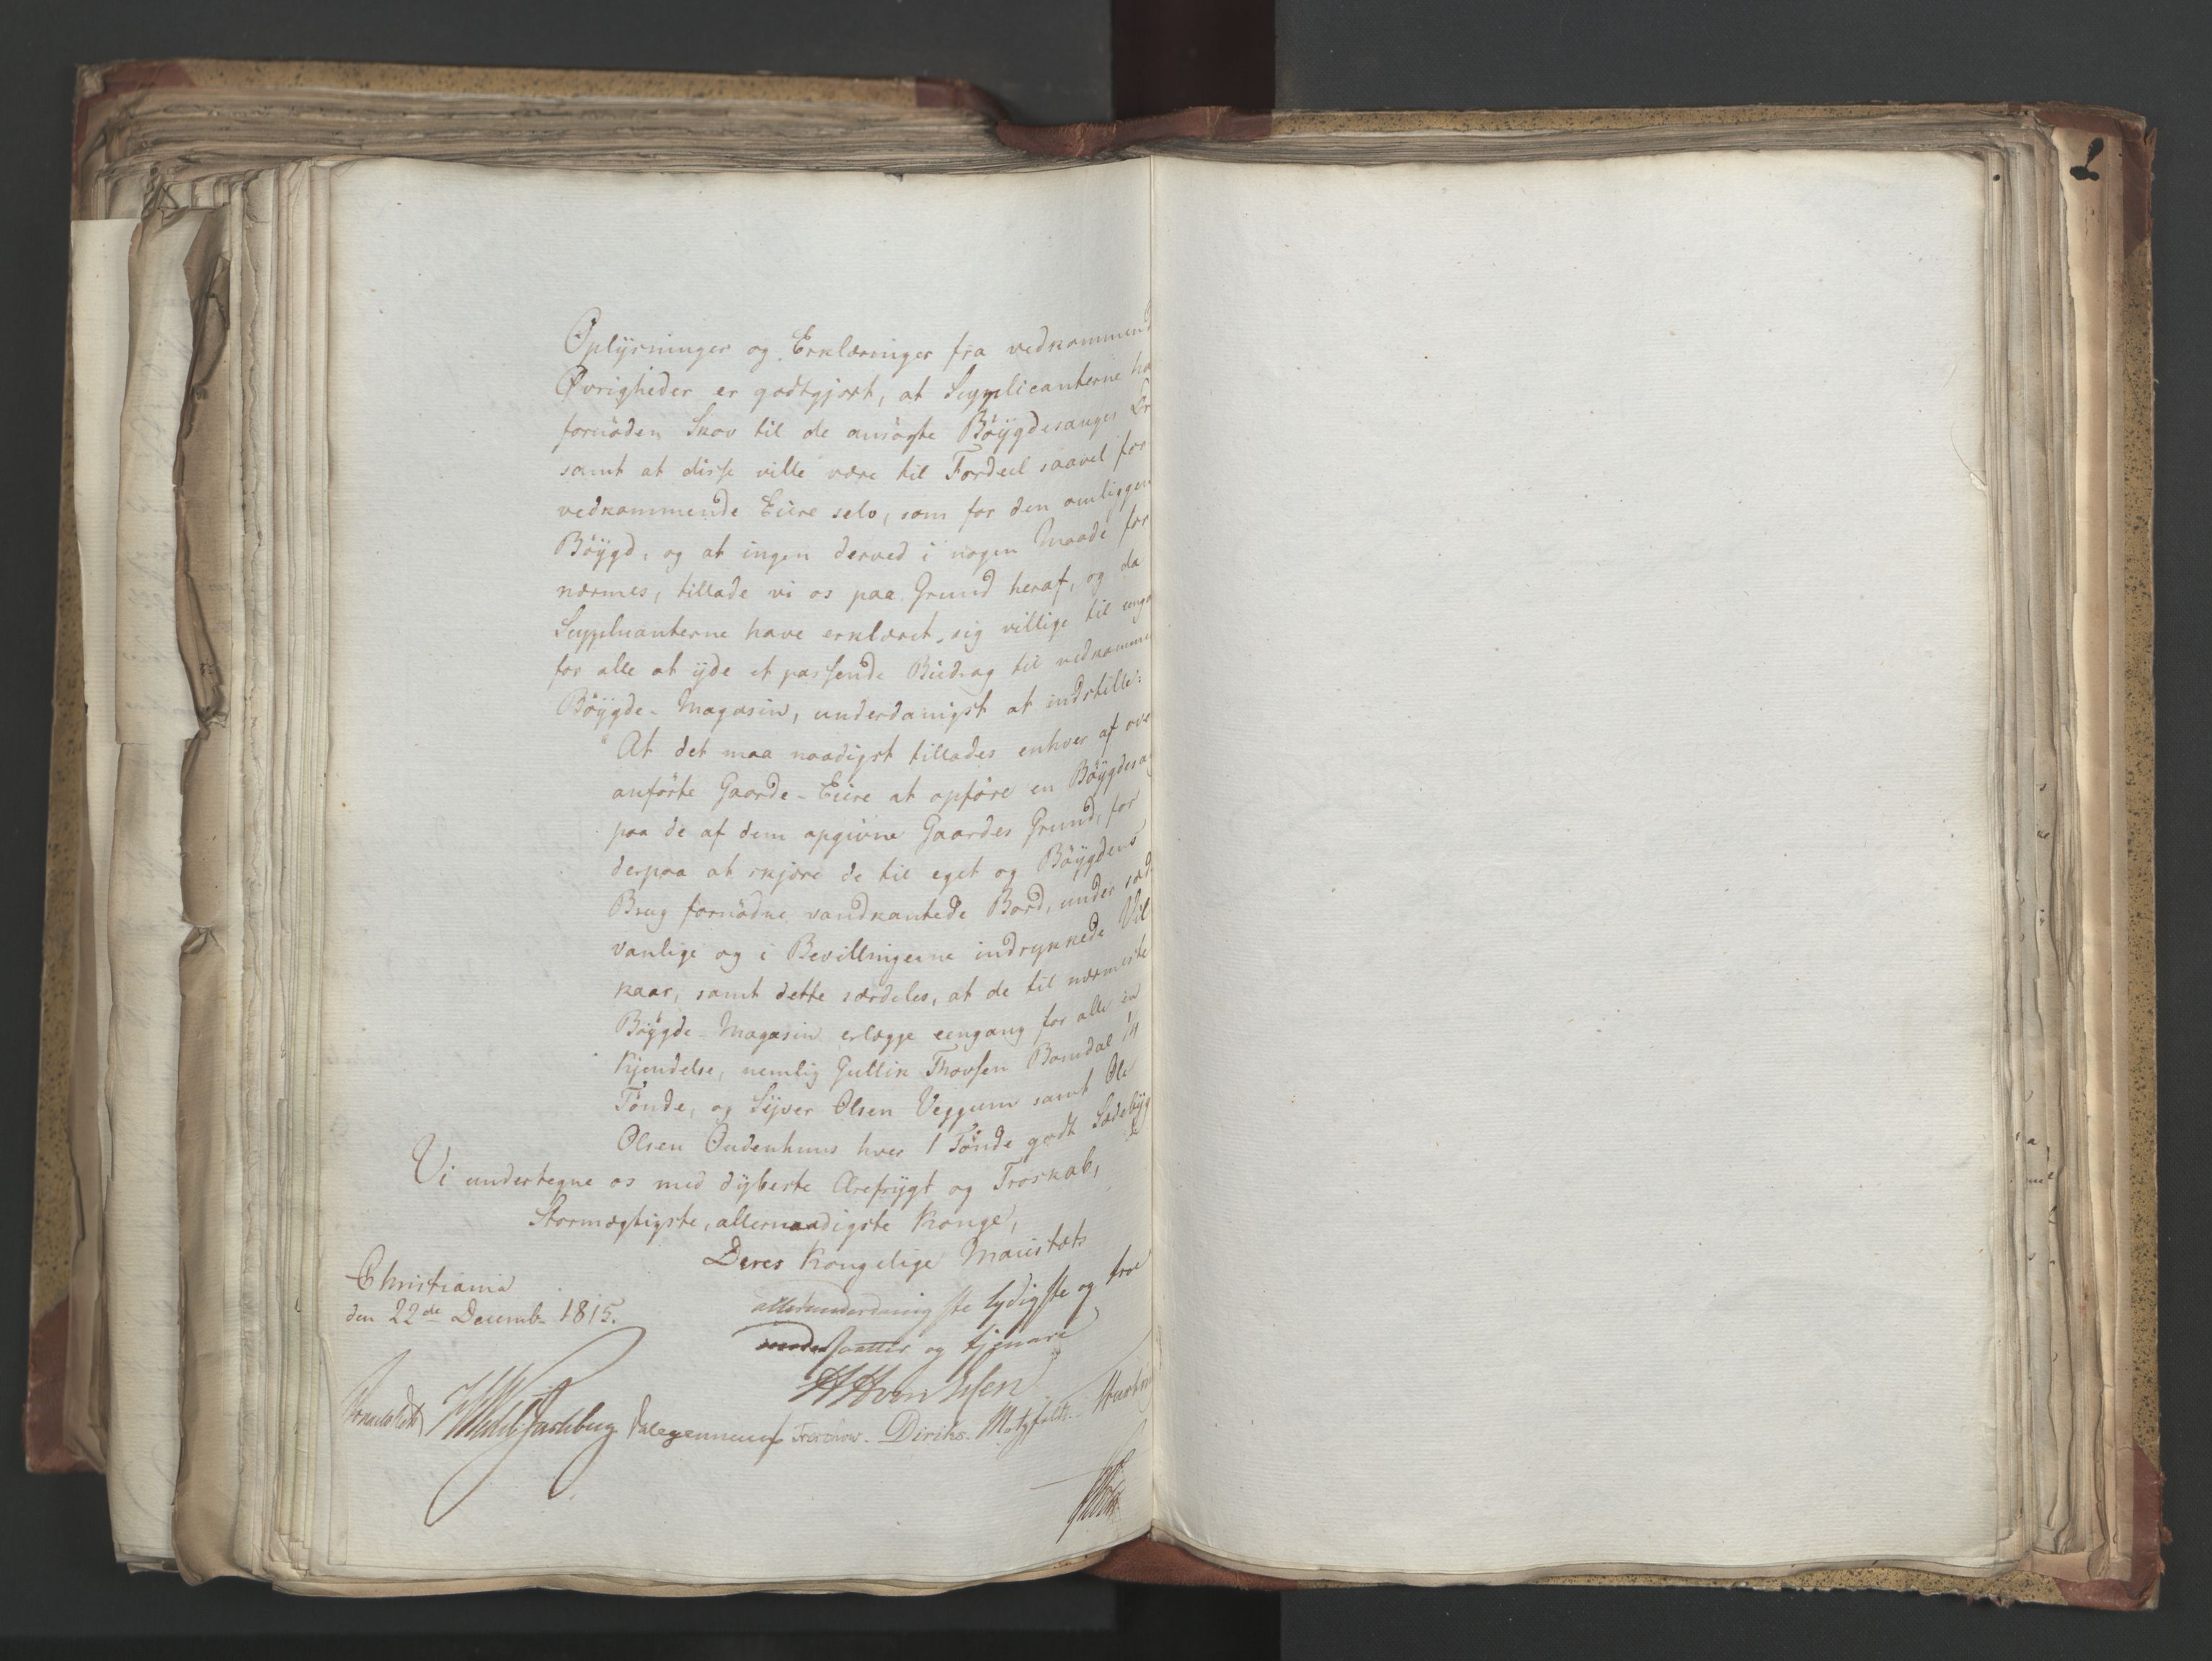 Oplysninger og Erklæringer fra vedkommend
Øvrigheder er godtgjort, at Supplicanterne ha
fornöden Skov til de ansögte Böÿgdesauges Dr
samt at disse ville være til Fordeel saavel for
vedkommende Eiere selv, som for den omliggen
Böÿgd, og at ingen derved i nogen Maade for
nærmes, tillade vi os paa Grund heraf, og da
Supplicanterne have erklæret sig villige til engan
for alle at ÿde et passende Bidrag til vedkomme
Böÿgde-Magasin, underdanigst at indstille:
"At det maa naadigst tillades enhver af ove
anförte Gaarde-Eiere at opföre en Böÿgdesa
paa de af dem opgivne Gaardes Grund, for
derpaa at skjære de til eget og Böÿgdens
Brug fornödne vandkantede Bord, under sæd
vanlige og i Bevillingerne indrykkede Vil
kaar, samt dette særdeles, at de til nærmeste
Böÿgde-Magasin erlægge eengang for alle en
Kjendelse, nemlig Gullik Thovsen Bomdal 1/4
Tönde, og Sÿver Olsen Veggum samt Ole
Olsen Oudenhuus hver 1 Tönde godt Sædebÿg
Vi undertegne os med dÿbeste Ærefrÿgt og Troskab,
Stormægtigste, allernaadigste Konge,
Deres Kongelige Maiestæts
Christiania
den 22de Decemb. 1815.
allerunderdanigste lydigste og troe
undersaatter og tjenere
Diriks. Motzfeldt.